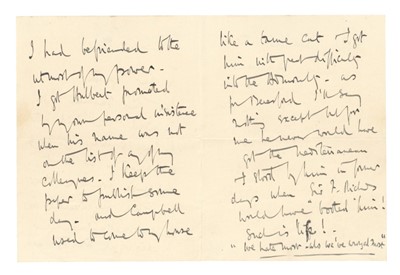 I had befriended to the
utmost of my power -
I got Hulbert promoted
by my own personal insistence
when his name was not
on the list of any of my
colleagues. I keep the
paper to publish some
day - and Campbell
used to come to my house
like a tame cat & I got
him with great difficulty
into the Admiralty - as
for Beresford I'll say
nothing except but for
me he never would have
got the Mediterranean
I stood by him in former
days when Sir F. Richards
would have "booted him"!
Such is life! -
"We hate most those we've wronged most"